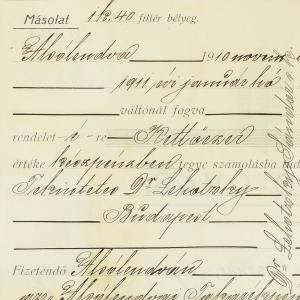 Másolat 1 k. 40 fillér bélyeg.
Alsólendva 1910 novem
1911 évi január hó
váltónál fogva
rendelet-é-re Kettőezer
értéke készpénzben tegye számolásba
Tekintetes Dr Lehotzky
Budapest
Fizetendő Alsólendván
Alsólendvai Takarék